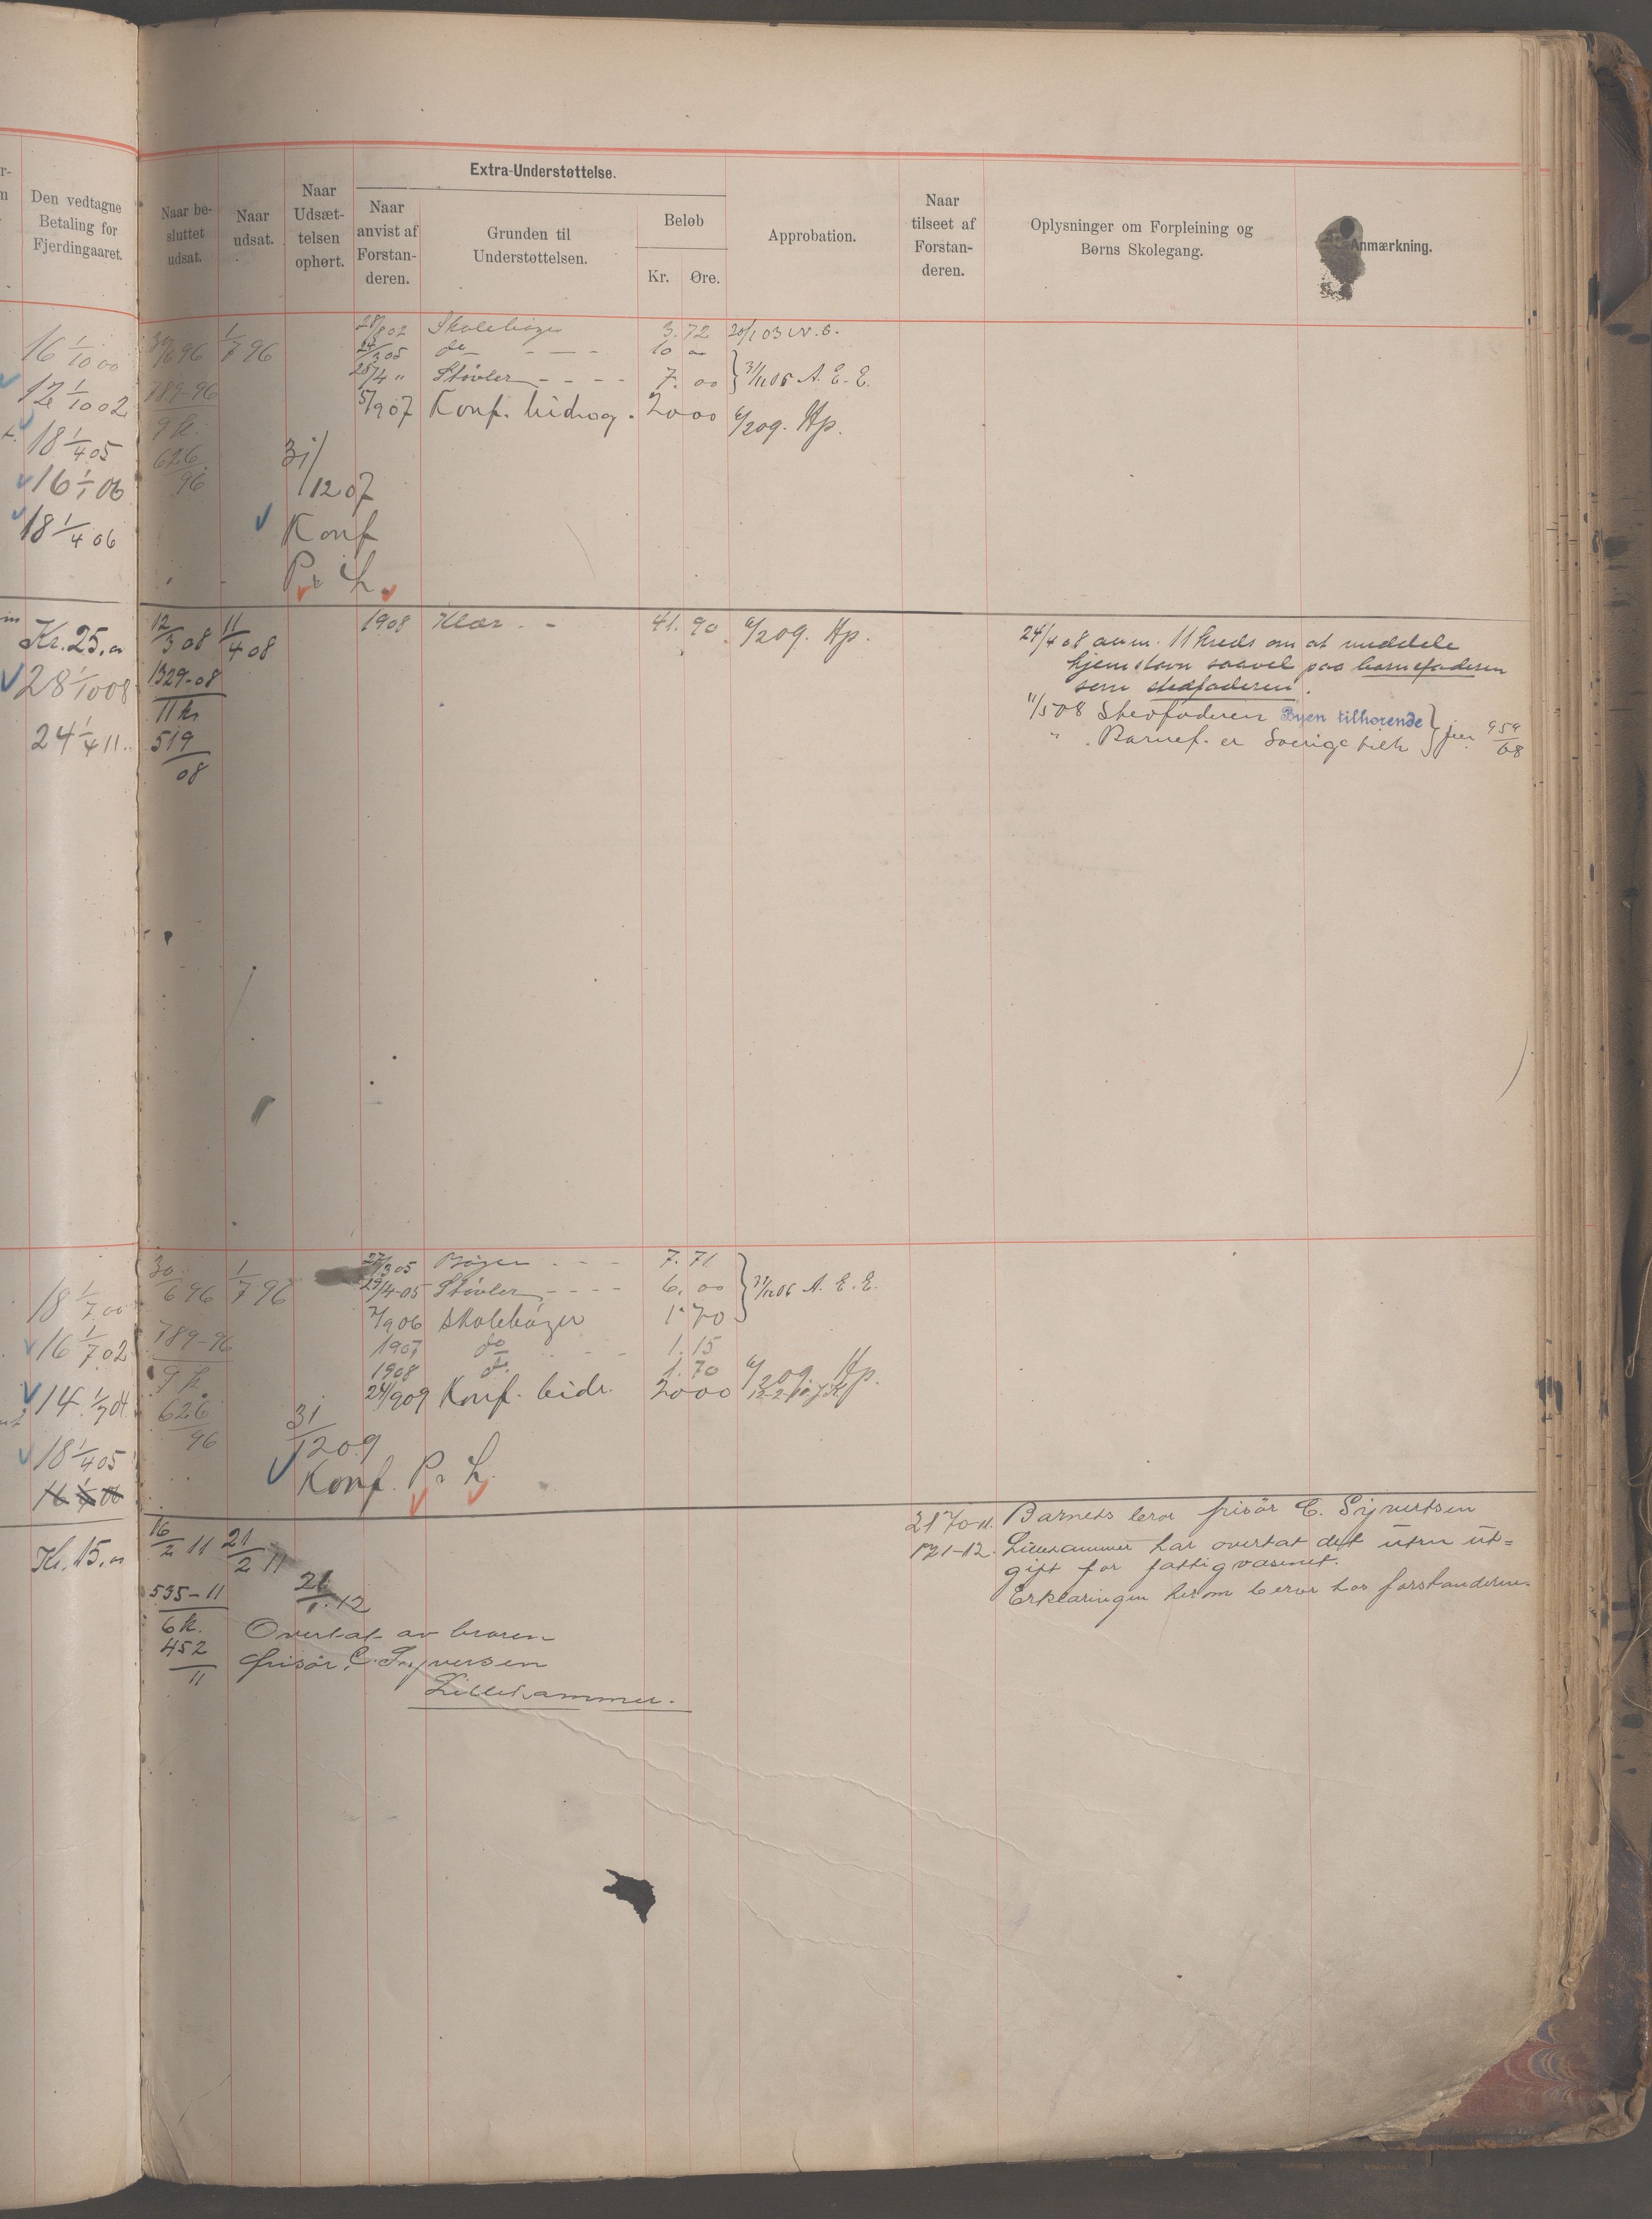 Den vedtagne
Betaling for
Fjerdingaaret.
16 1/10 00
12 1/10 02
18 1/4 05
16 1/1 06
18 1/4 06
Kr. 25.
28 1/10 08
24 1/4 11
18 1/7 00
16 1/7 02
14 1/7 04
18 1/4 05
16 1/1 06
Kr. 15.
Naar be-
sluttet
udsat.
Naar
udsat.
Naar
Udsæt-
telsen
ophørt.
Extra-Understøttelse.
Naar
anvist af
Forstan-
deren.
Grunden til
Understøttelsen.
Beløb
Kr. Øre.
Approbation.
Naar
tilseet af
Forstan-
deren.
Oplysninger om Forpleining og
Børns Skolegang.
Anmærkning.
30/6 96 1/7 96 28/8 02 Skolebøger 3. 72 20/1 03 W. E.
24/3 05 do - - - 10 00
25/4 " Støvler - - - - 7. 00 31/12 05 A. E. E.
789-96
9 k.
5/9 07 Konf. bidrag. 20 00 6/2 09. Hp.
626
96
31/12 07
Konf
Pr L.
12/3 08 11/4 08 1908 Klær. - 41. 90 6/2 09. Hp. 24/4 08 anm. 11 kreds om at meddele
hjemstavn saavel paa barnefaderen
som stedfaderen.
1329-08
11 k
519
08
11/5 08 Stedfaderen Byen tilhørende
" Barnef. er Sverige tilh. } jnr. 959/08
30/6 96 1/7 96 27/3 05 Bøger - - - 7. 71
29/4-05 Støvler - - - - 6. 00 31/12 05 A. E. E.
7/9 06 Skolebøger 1 70
789-96
1907 do - - - 1. 15
9 k.
1908 do. 1. 70 6/2 09. Hp.
24/9 09 Konf. bidr. 20 00
626
96
31/12 09
Konf. Pr L.
16/2 11 21/2 11
21/1. 12
535-11
6 k.
452
11
Overtat av broren
frisør, C. Syversen
Lillehammer.
Barnets bror frisør C. Syvertsen
Lillehammer har overtat det uten ut=
gift for fattigvæsenet.
Erklæringen herom beror hos forstanderen.